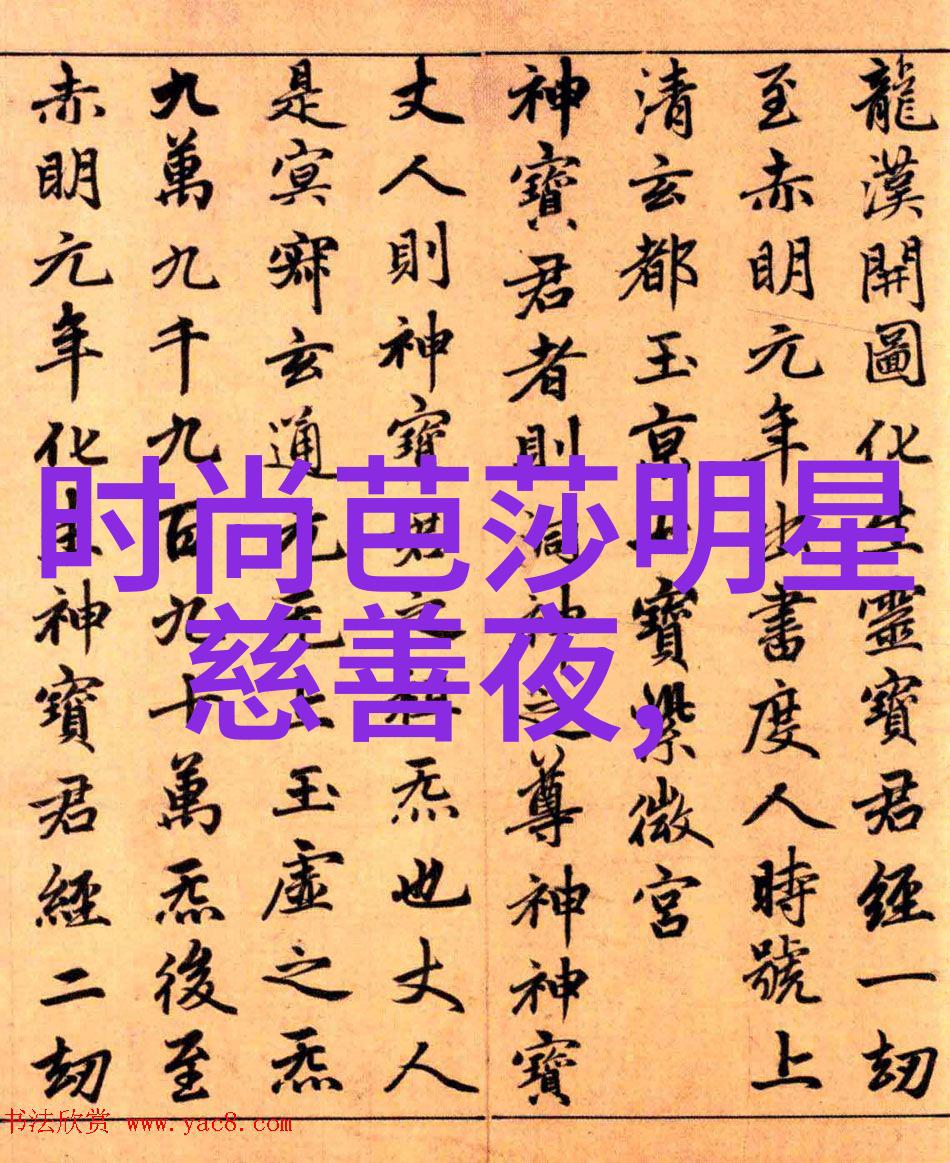 龍漢開圖化生靈寶君經一劫
至赤明元年出書度人時號上
清玄都玉京七寶紫微宮
神寶君者則洞神之尊神神寶
丈人則神寶君之祖炁也丈人
是冥寂玄通元无上玉虛之炁
九萬九千九百九十萬炁後至
赤明元年化生神寶君經二劫
时尚芭莎明星
慈善夜,
书法欣赏 www.yac8.com